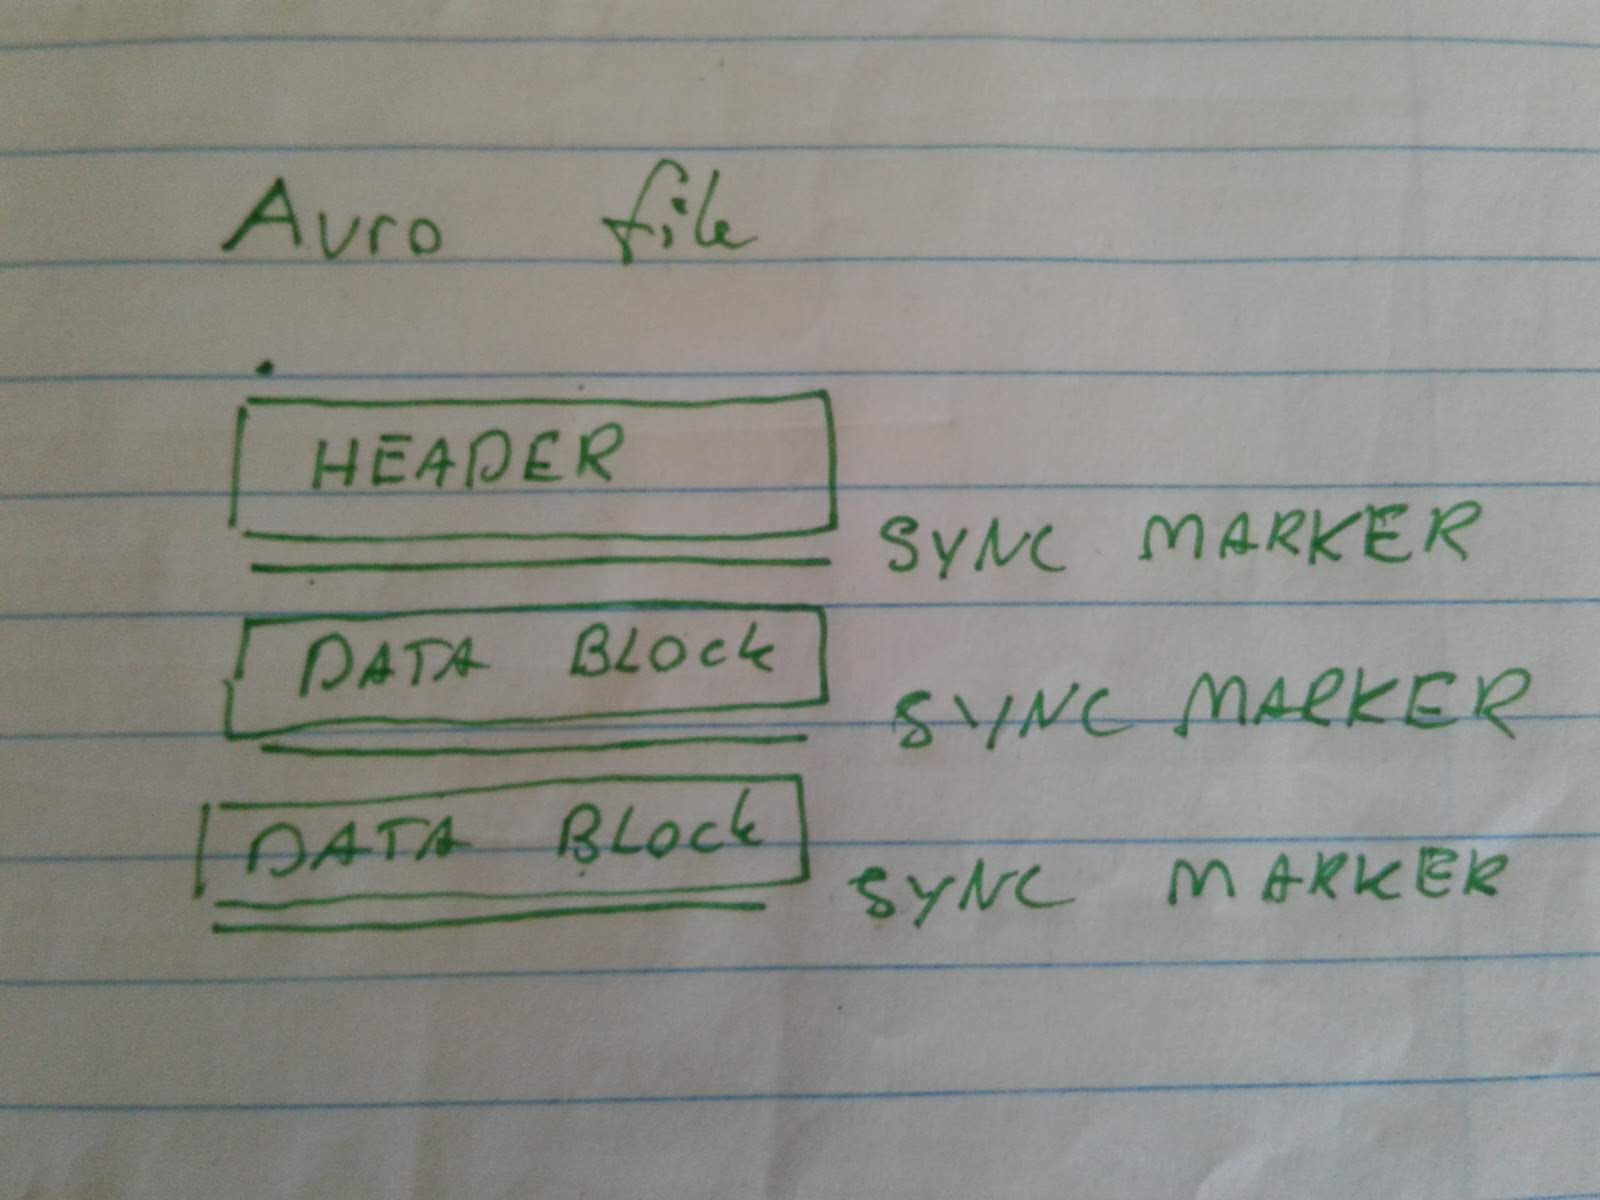 Avro file
HEADER
SYNC MARKER
DATA BLOCK
SYNC MARKER
DATA BLOCK
SYNC MARKER